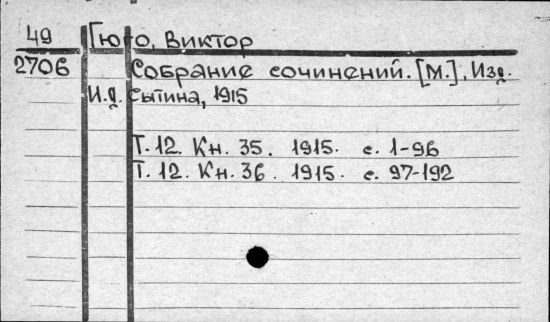 49 Гюго, Виктор
2706 Собрание сочинений. [М.], Изд.
И.Д. Сытина, 1915
Т. 12. Кн. 35. 1915. с. 1-96
Т. 12. Кн. 36. 1915. с. 97-192